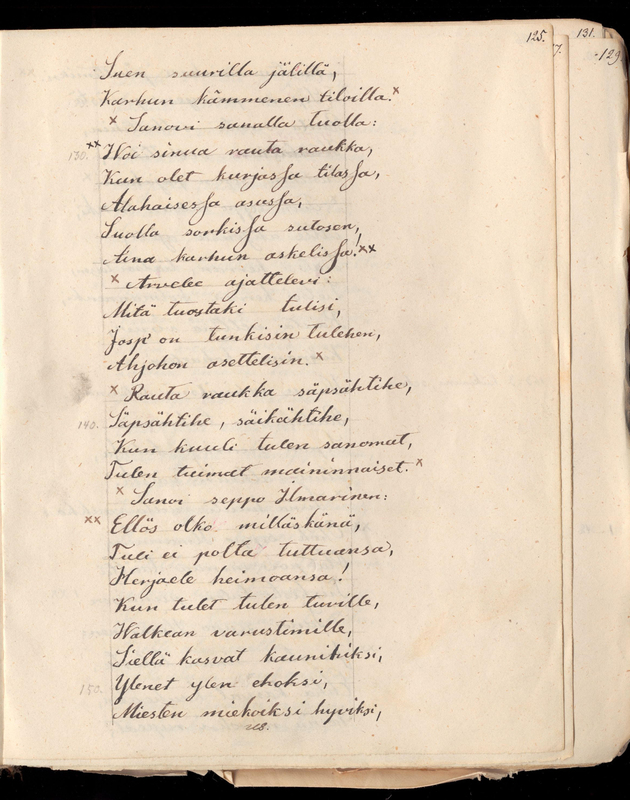 125.
131.
7.
-129.
Suen suurilla jälillä,
Karhun kämmenen tiloilla.x
x Sanovi sanalla tuolla:
130. xx Woi sinua rauta raukka,
Kun olet kurjassa tilassa,
Alahaisessa asussa,
Suolla sorkissa sutosen,
Aina karhun askelissa!xx
x Arvelee ajattelevi:
Mitä tuostaki tulisi,
Josp' on tunkisin tulehen,
Ahjohon asettelisin. x
x Rauta raukka säpsähtihe,
140. Säpsähtihe, säikähtihe,
Kun kuuli tulen sanomat,
Tulen tuimat maininnaiset. x
x Sanoi seppo Ilmarinen:
xx Ellös olko milläskänä,
Tuli ei polta tuttuansa,
Herjaele heimoansa!
Kun tulet tulen tuville,
Walkean varustimille,
Siellä kasvat kaunihiksi,
150. Ylenet ylen ehoksi,
Miesten miekoiksi hyviksi,